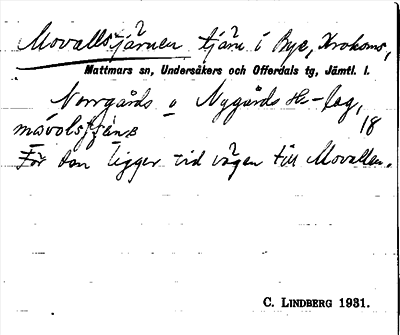 Movallstjärnen tjärn i Bye, Krokoms,
Mattmars sn, Undersåkers och Offerdals tg, Jämtl. l.
Norrgårds o Nygårds Hs-lag,
18
För den ligger vid vägen till Movallen.
C. LINDBERG 1931.